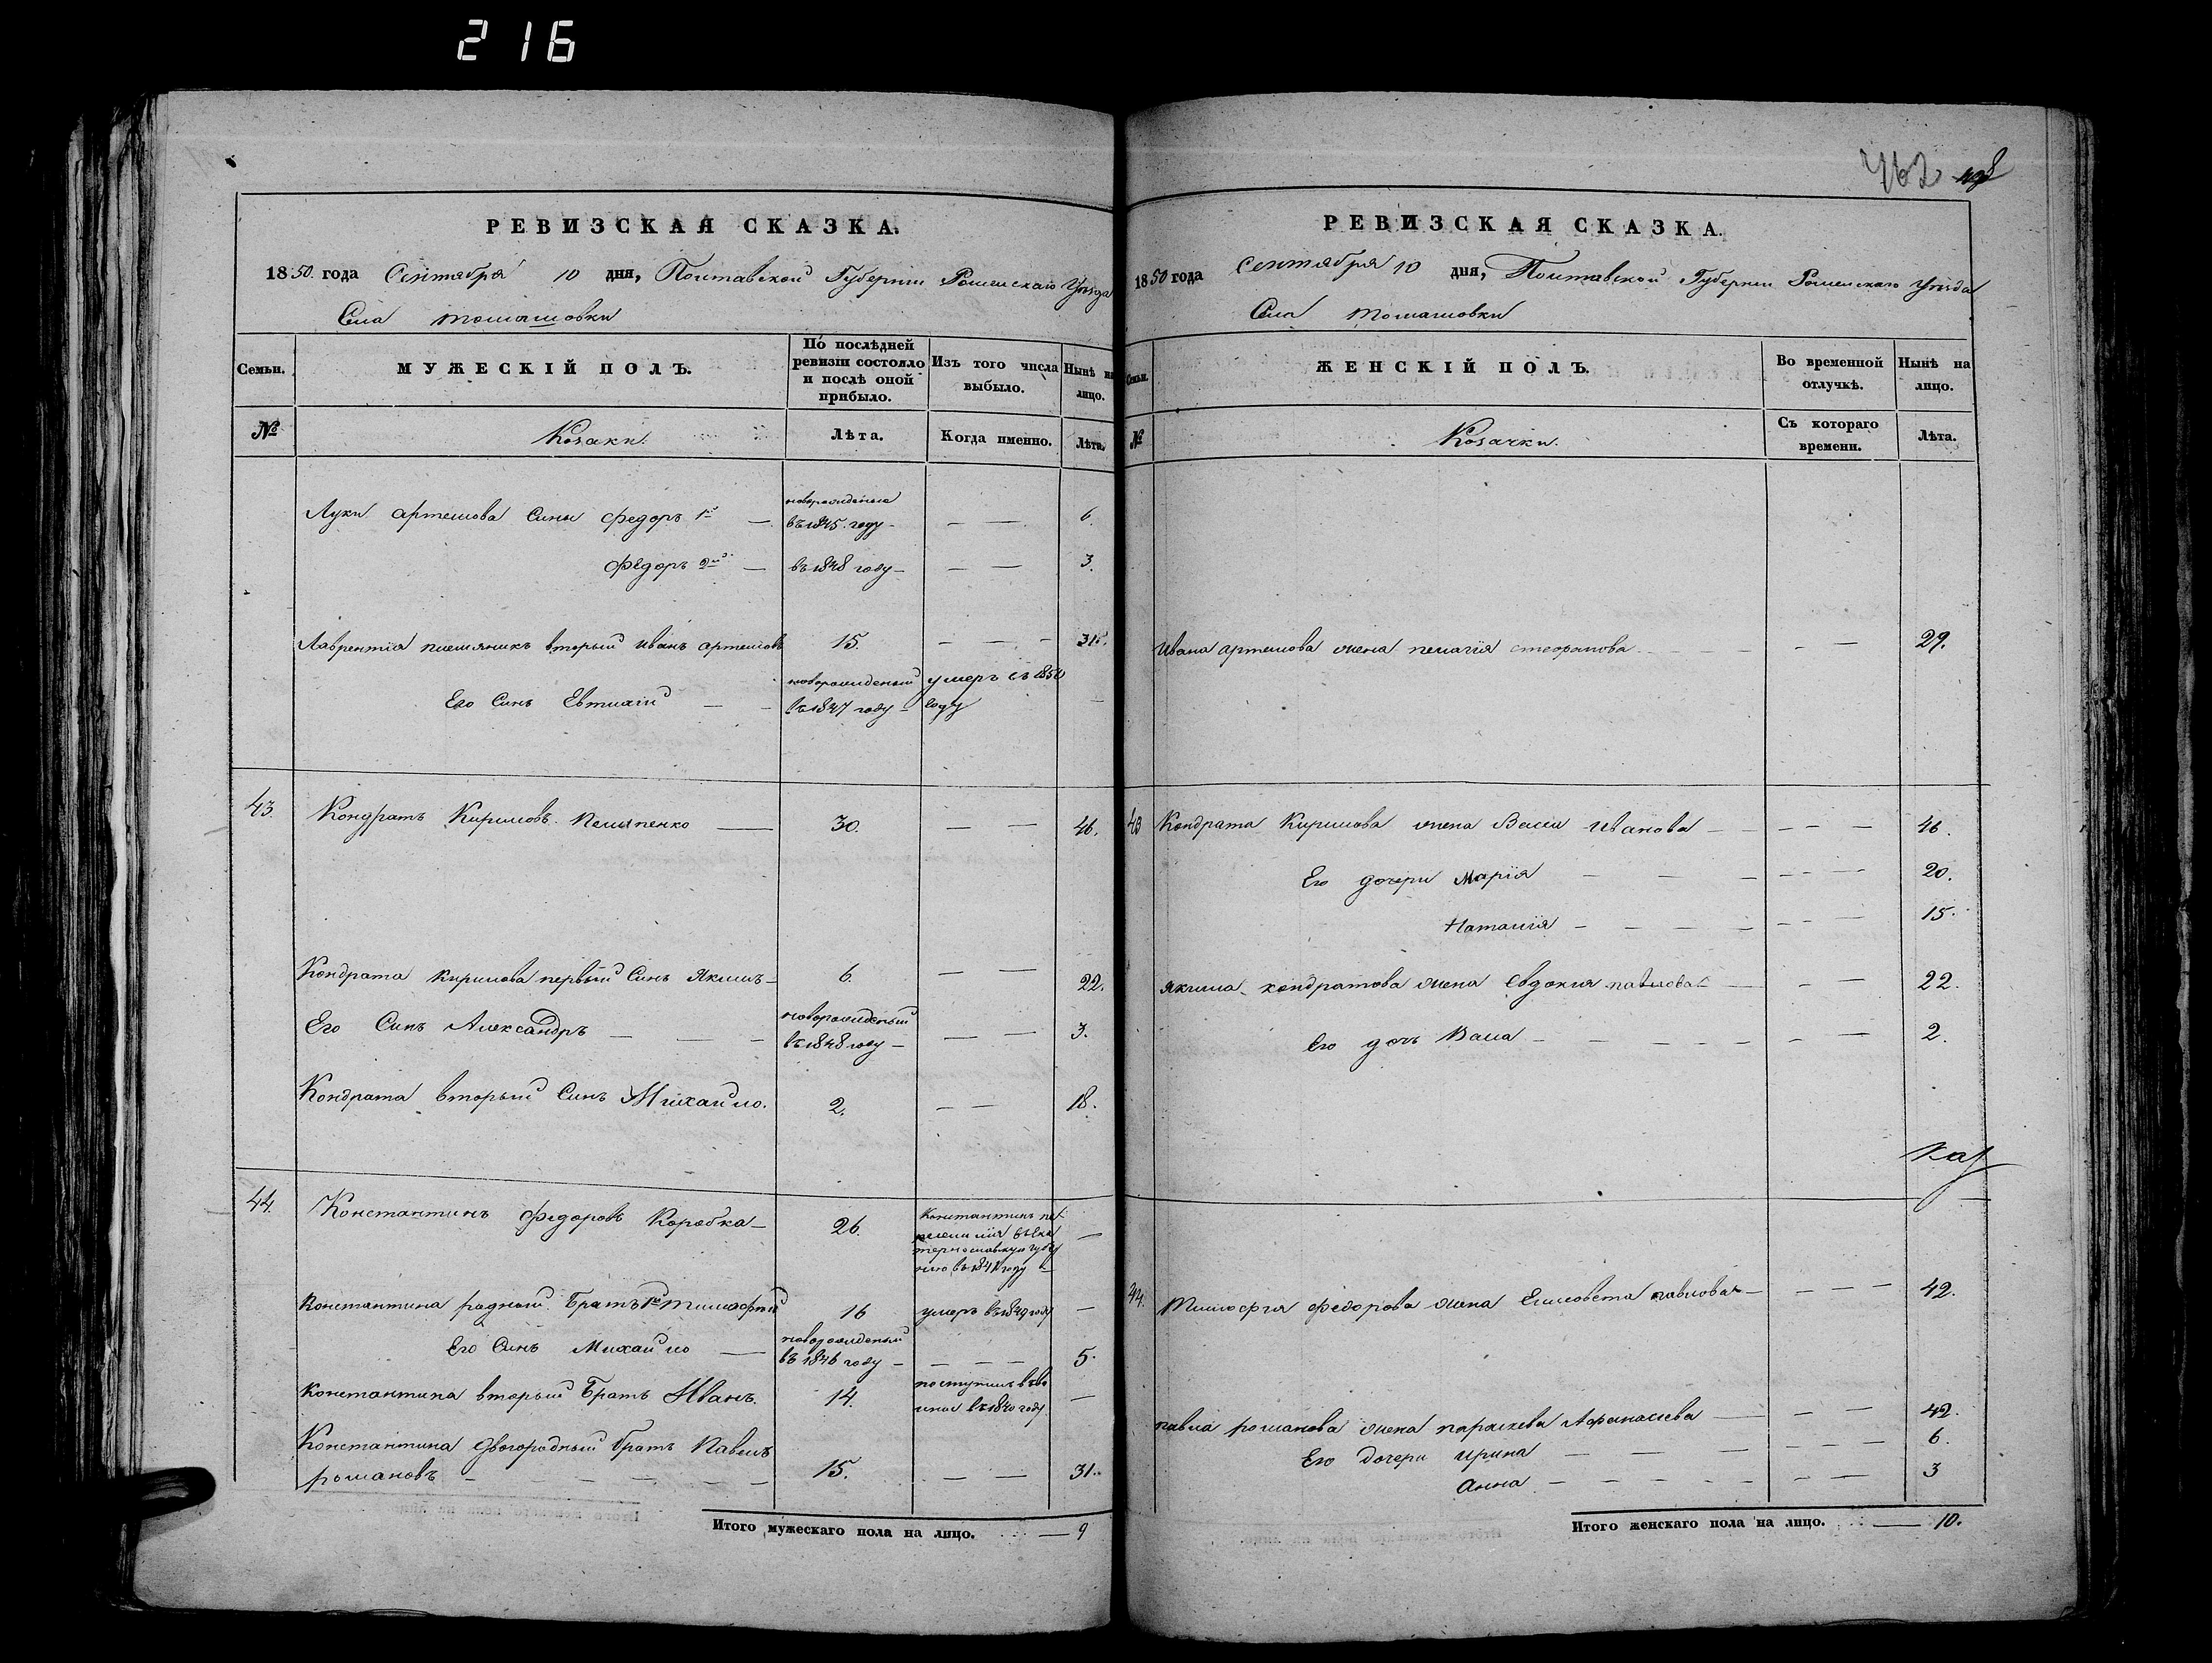 216
462
РЕВИЗСКАЯ СКАЗКА.
1850 года Сентября 10 дня, Полтавской Губернии Роменскаго Уѣзда
Села Томашовки
Семьи. МУЖЕСКІЙ ПОЛЪ. По послѣдней ревизіи состояло и послѣ оной прибыло. Изъ того числа выбыло. Нынѣ на лицо.
№ Козаки. Лѣта. Когда именно. Лѣта.
Луки Артемова Сины Федоръ 1й — новорожденые въ 1845. году — — — 6.
Федоръ 2й — въ 1848 году — — — 3.
Лаврентія племяникъ вторый Иванъ Артемовъ 15. — — — 31.
Его Синъ Евтихій — — новорожденый въ 1847 году — умеръ въ 1850 году —
43. Кондратъ Кириловъ — 30. — — 46.
Кондрата Кирилова первый Синъ Якимъ — 6. — — 22.
Его Синъ Александръ — — — новорожденый въ 1848 году — — — 3.
Кондрата вторый Синъ Михайло. 2. — — 18.
44. Константинъ Федоровъ Коробка — 26. Константинъ въ 1841 году —
Константина родный Братъ 1й Тимофей 16 умеръ въ 1849 году —
Его Синъ Михайло — новорожденый въ 1846 году — — — — 5.
Константина вторый Братъ Иванъ. 14. поступилъ въ 1840 году —
Константина двогородный братъ Павелъ
романовъ — — — — — — 15. — — 31.
Итого мужескаго пола на лицо. — 9
РЕВИЗСКАЯ СКАЗКА.
1850 года Сентября 10 дня, Полтавской Губернии Роменскаго Уѣзда
Села Томашовки
Семьи. ЖЕНСКІЙ ПОЛЪ. Во временной отлучкѣ. Нынѣ на лицо.
№ Козачки. Съ котораго времени. Лѣта.
Ивана Артемова жена пелагія стефанова — — 29.
43 Кондрата Кирилова жена Васса Иванова — — — — 46.
Его дочери Марія — — — — — — 20.
Наталія — — — — — — 15.
Якима кондратова жена Евдокия павлова — — — 22.
Его дочь — — — — — — — 2.
44. Тимофея федорова жена Елисовета павлова — — — — 42.
павла романова жена параскева Афанасиева — — — 42.
Его дочери ирина — — — — — — 6.
анна — — — — — — — 3
Итого женскаго пола на лицо. — 10.